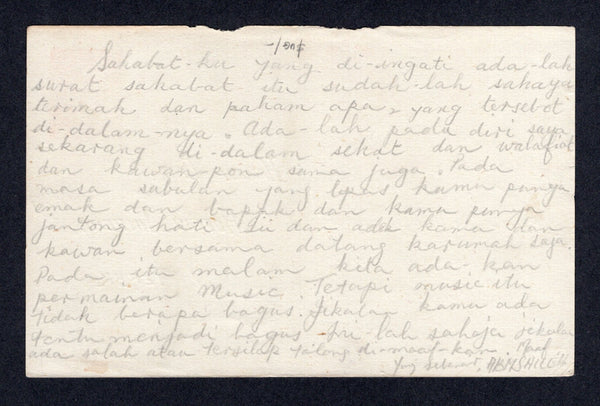 Sahabat-ku yang di-ingati ada-lah
surat sahabat itu sudah-lah sahaya
terimah dan paham apa, yang tersebot
di-dalam-nya. Ada-lah pada diri saya
sekarang di-dalam sehat dan walafiat
dan kawan-pon sama juga. Pada
masa sabulan yang lepas kamu punya
emak dan bapak dan kamu punya
jantong hati dan adek kamu dan
kawan bersama datang karumah saya.
Pada itu malam kita ada-kan
permainan Music. Tetapi music itu
tidak berapa bagus. Jikalau kamu ada
tentu menjadi bagus. Itu-lah sahaja jikalau
ada salah atau tersilap tolong di-maaf-kan.
Yang sebenar,